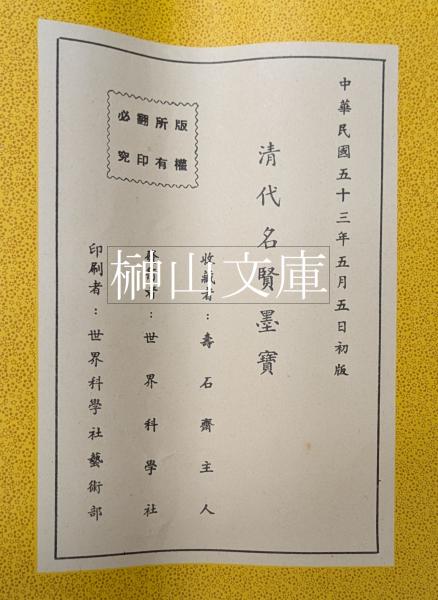 中華民國五十三年五月五日初版
清代名賢墨寶
收藏者：壽石齋主人
發行者：世界科學社
印刷者：世界科學社藝術部
版權
所有
翻印
必究
榊山文庫